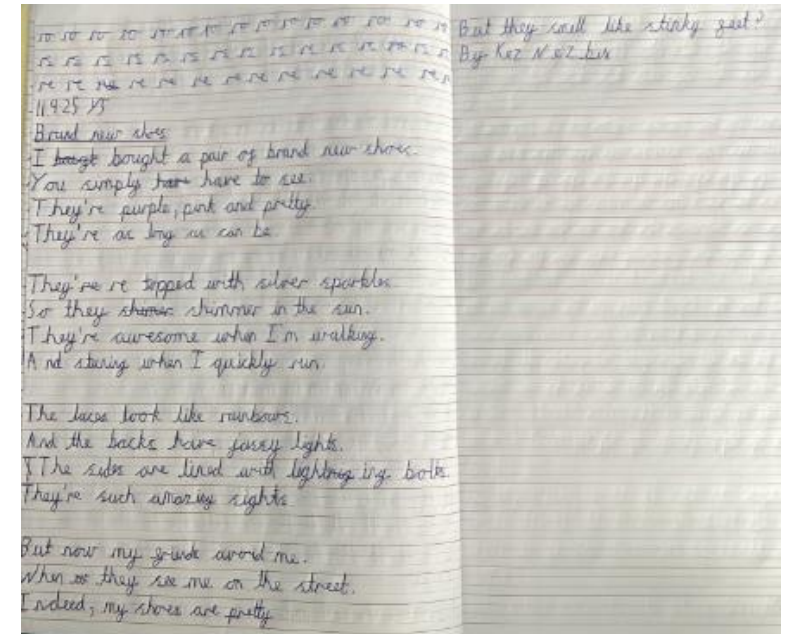 ro ro ro ro ro ro ro ro ro ro ro ro ro
rs rs rs rs rs rs rs rs rs rs rs rs rs
re re re re re re re re re re re re re
11425 Y5
Brand new shoes
I bought a pair of brand new shoes.
You simply have to see.
They're purple, pink and pretty
They're as long as can be.
They're re topped with silver sparkles
So they shimmer in the sun.
They're awesome when I'm walking.
And when I quickly run.
The laces look like rainbows.
And the backs have lights.
The sides are lined with lightning ing bolts.
They're such amazing sights
But now my avoid me.
When they see me on the street.
Indeed, my shoes are pretty
But they smell like stinky feet?
By Kez